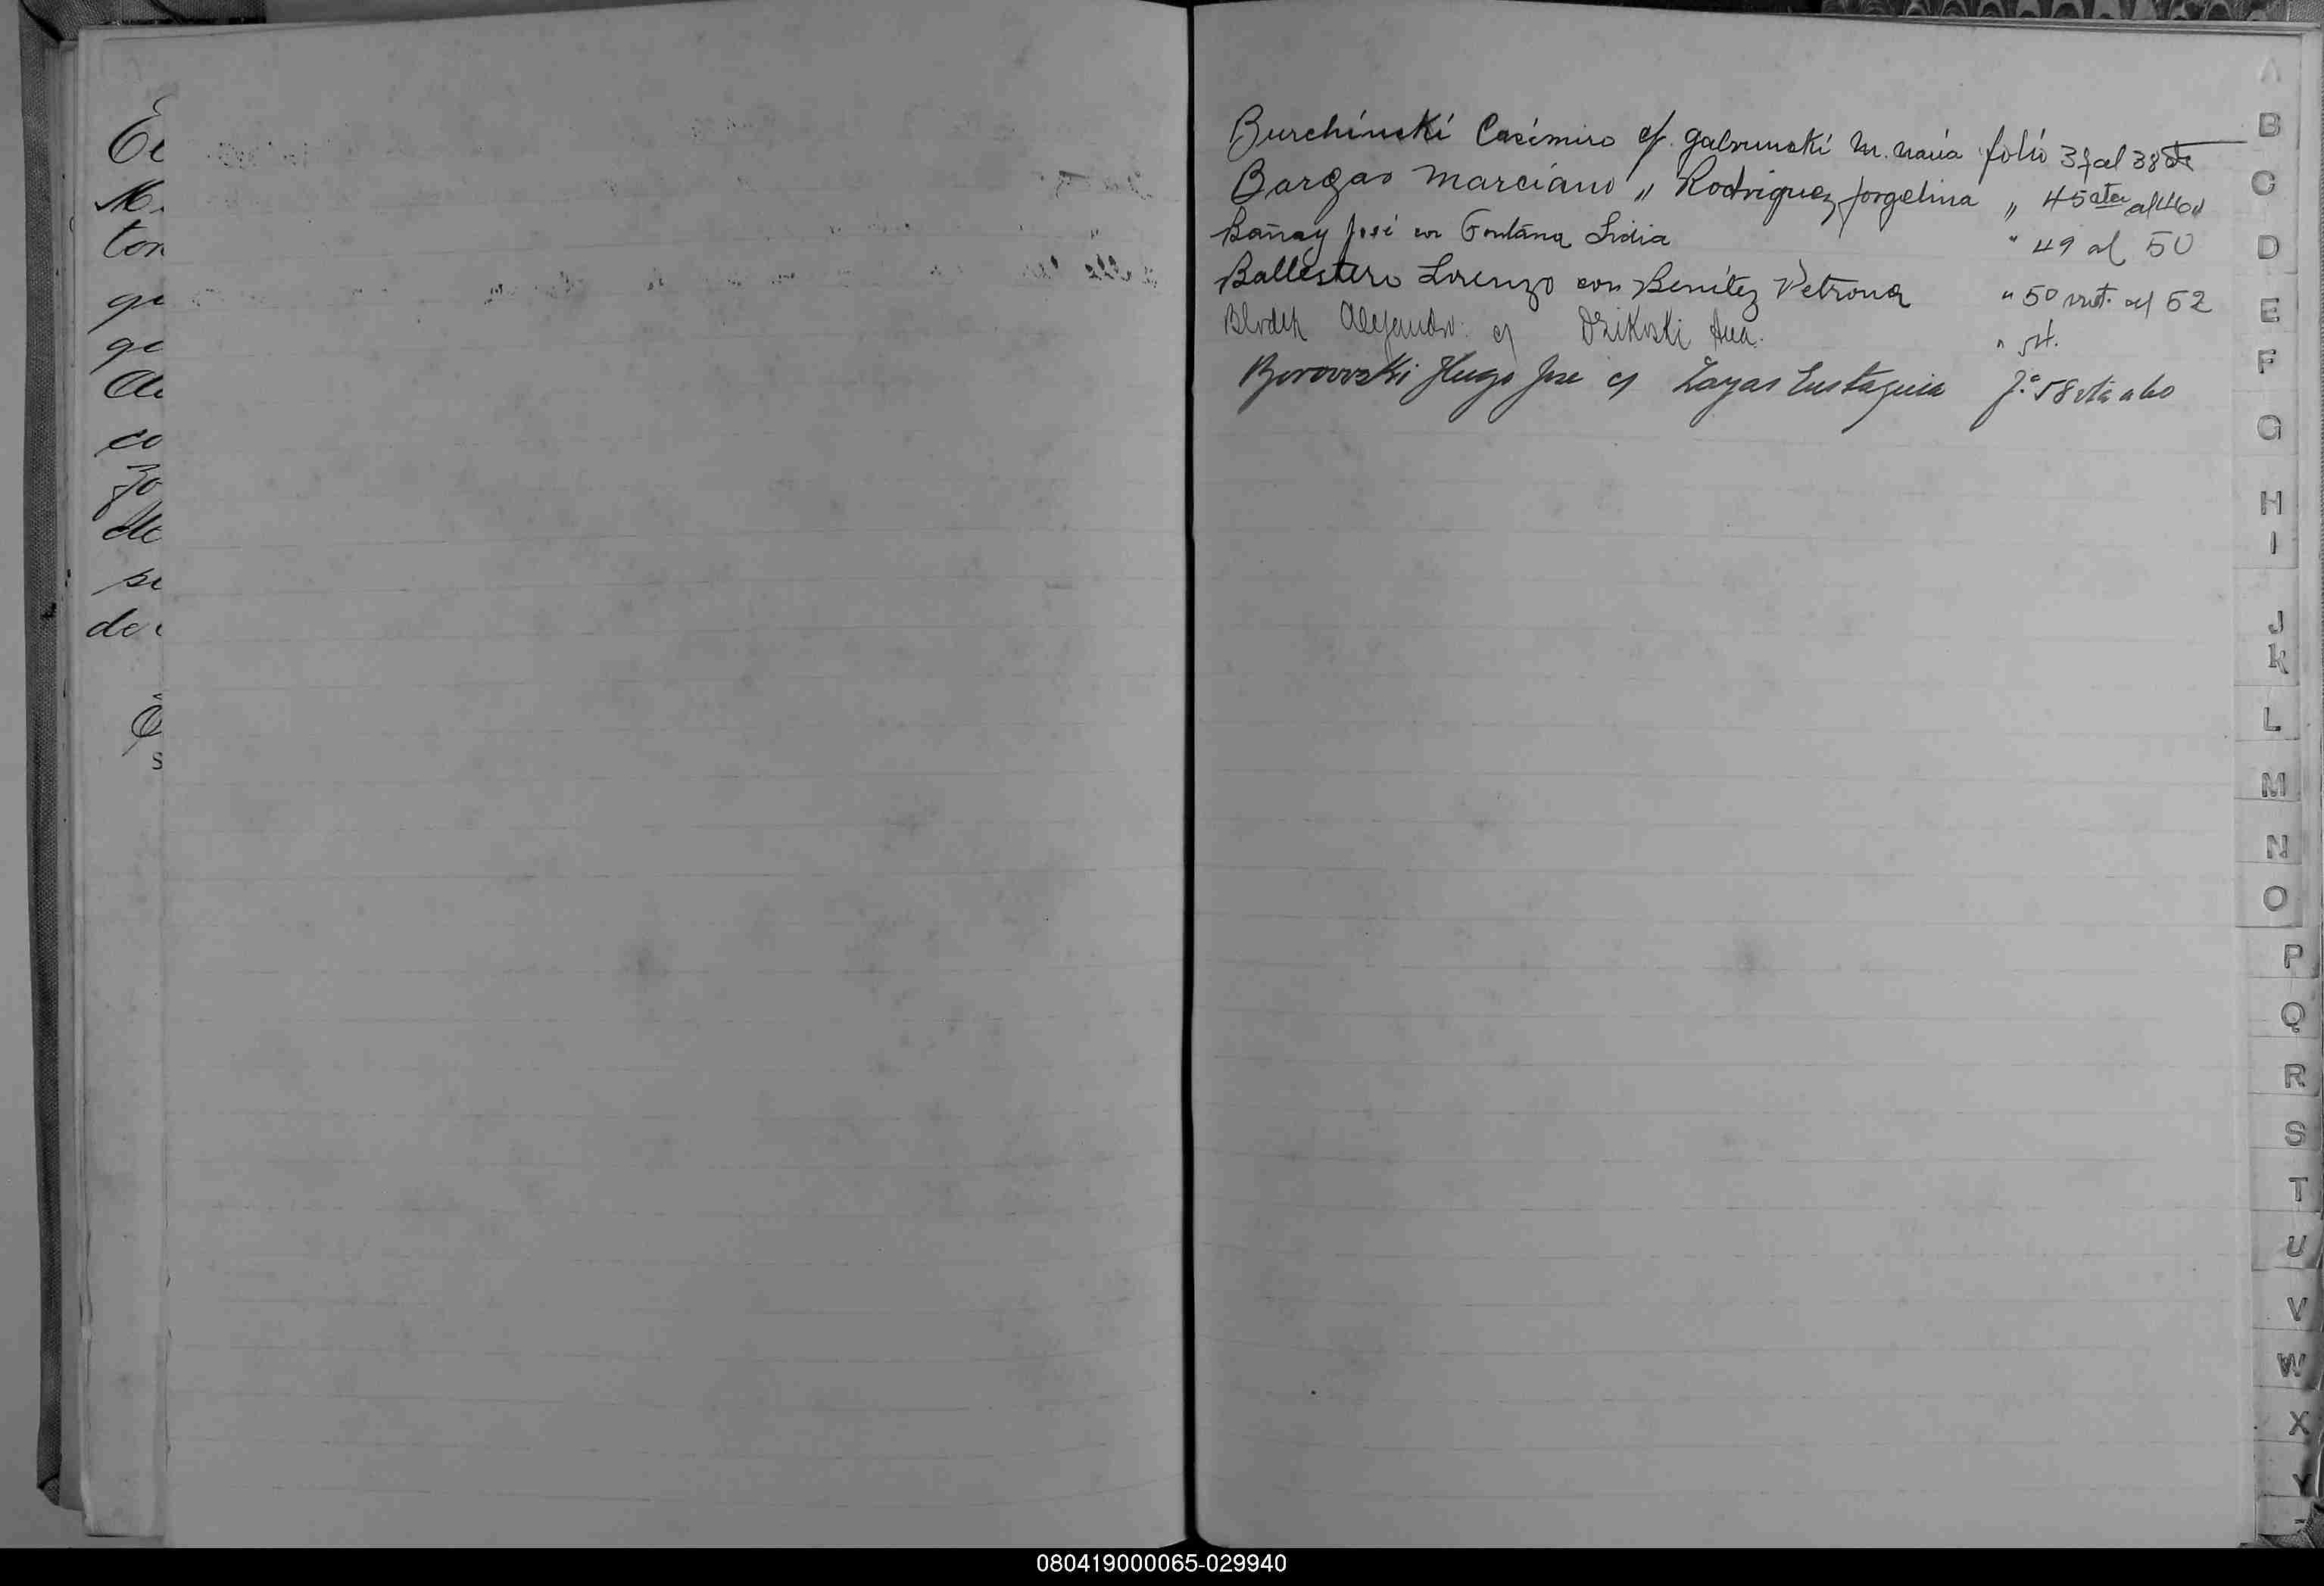 Ec
M.
ton
qu
qe
de
co
zo
de
se
de
Burchinski Casimiro c/. Galvunski M. María folio 37 al 38 vta
Bargas Marciano " Rodriguez Jorgelina " 45 vta al 46
Bañay José con Fontana Lidia " 49 al 50
Ballestero Lorenzo con Benítez Petrona " 50 vut. al 52
Blodek Alejandro c/ Dzikoski Ana. " 54.
Borowski Hugo Jose c/ Zayas Eustaquia f.° 58 vta a 60
A
B
C
D
E
F
G
H
I
J
K
L
M
N
O
P
Q
R
S
T
U
V
W
X
Y
080419000065-029940